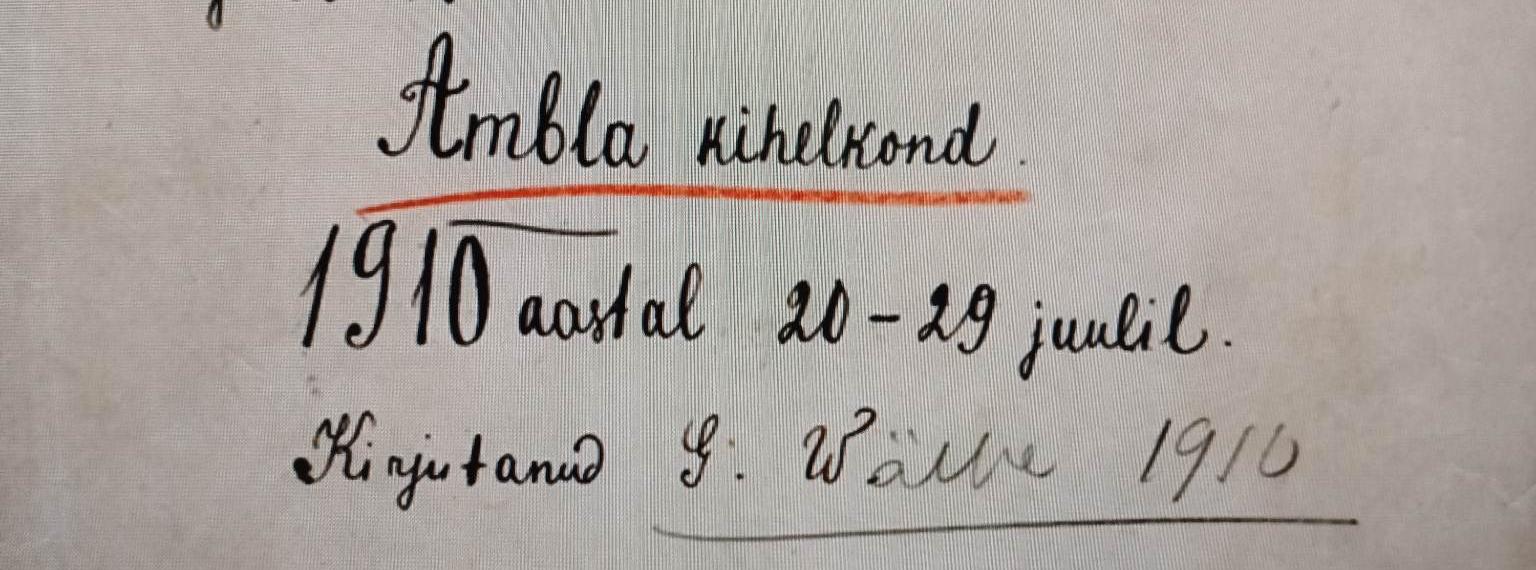 Ambla kihelkond.
1910 aastal 20-29 juulil.
Kirjutanud G. Wälbe 1910